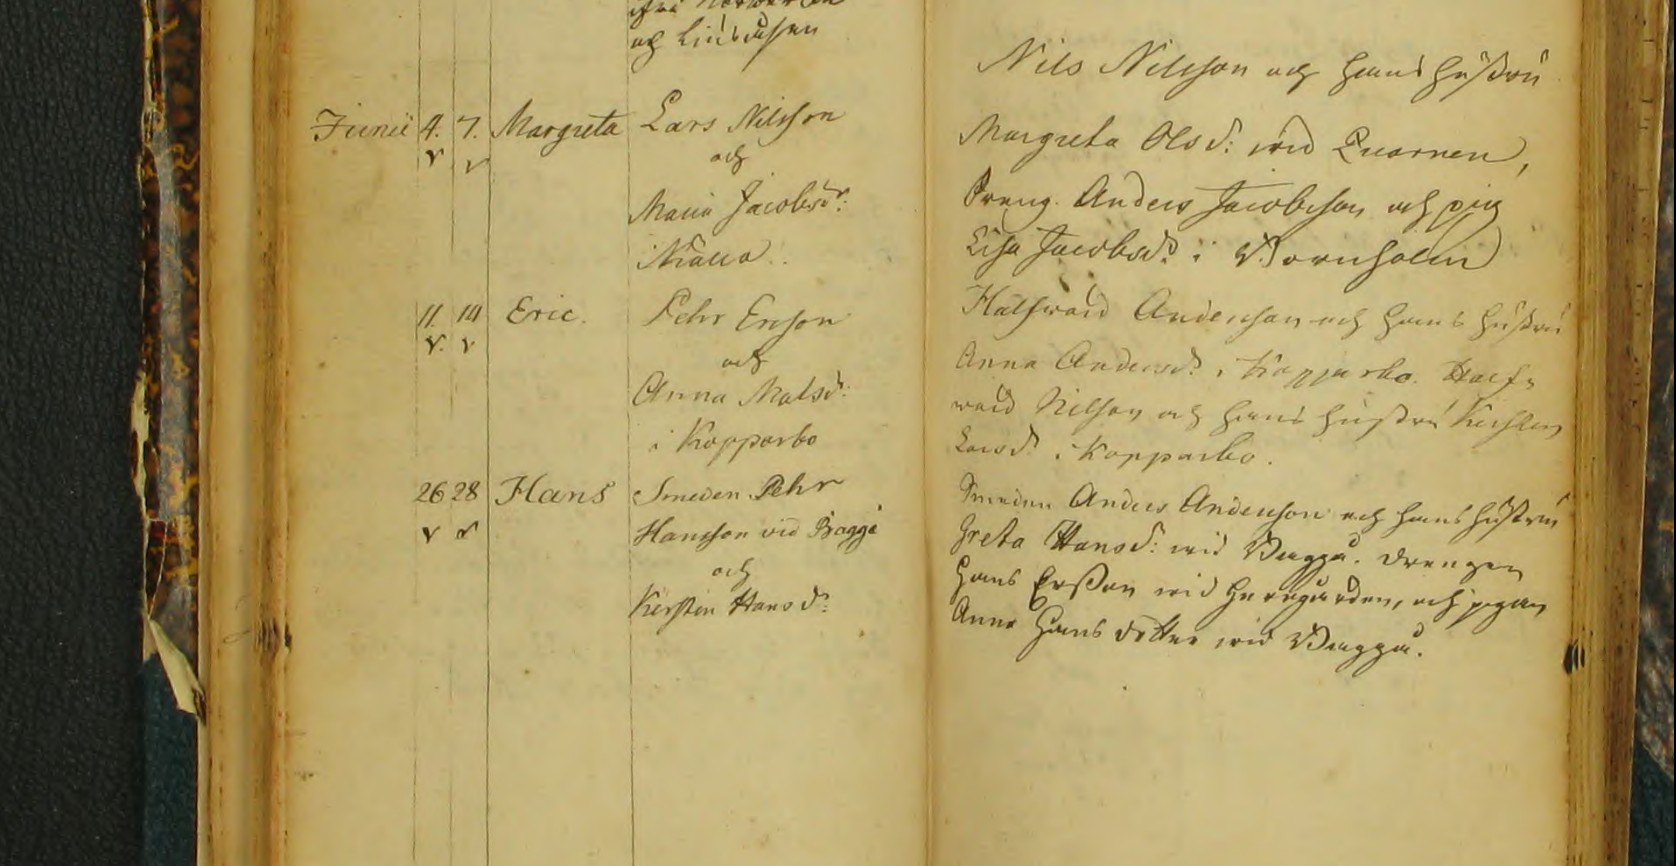 och
Junii 4. 7. Margreta Lars Nilsson
och
Maria Jacobsd:
i
11. 14 Eric. Pehr Ersson
och
Anna Matsd:
i Kopparbo
26 28 Hans Smeden Pehr
Hansson vid Bagga
och
Kersten Hansd:
Nils Nilsson och hans hustru
Margreta Olsd: wid Quarnen,
Dreng. Anders Jacobsson och pig
Lisa Jacobsd: i Bornholm
Halfward Andersson och hans hustru
Anna Andersd: i Kopparbo. Half=
ward Nilsson och hans hustru Kersten
Larsd: i Kopparbo.
Smeden Anders Andersson och hans hustru
Greta Hansd: wid Bagga. Drengen
Hans Ersson wid Herrgården, och pigan
Anna Hans dotter wid Bagga.